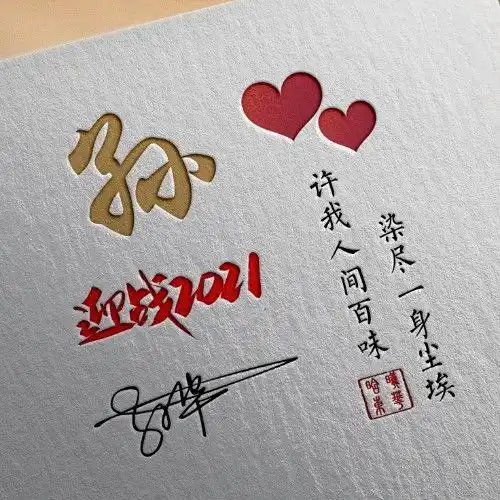 孙
迎战2021
许我人间百味
染尽一身尘埃